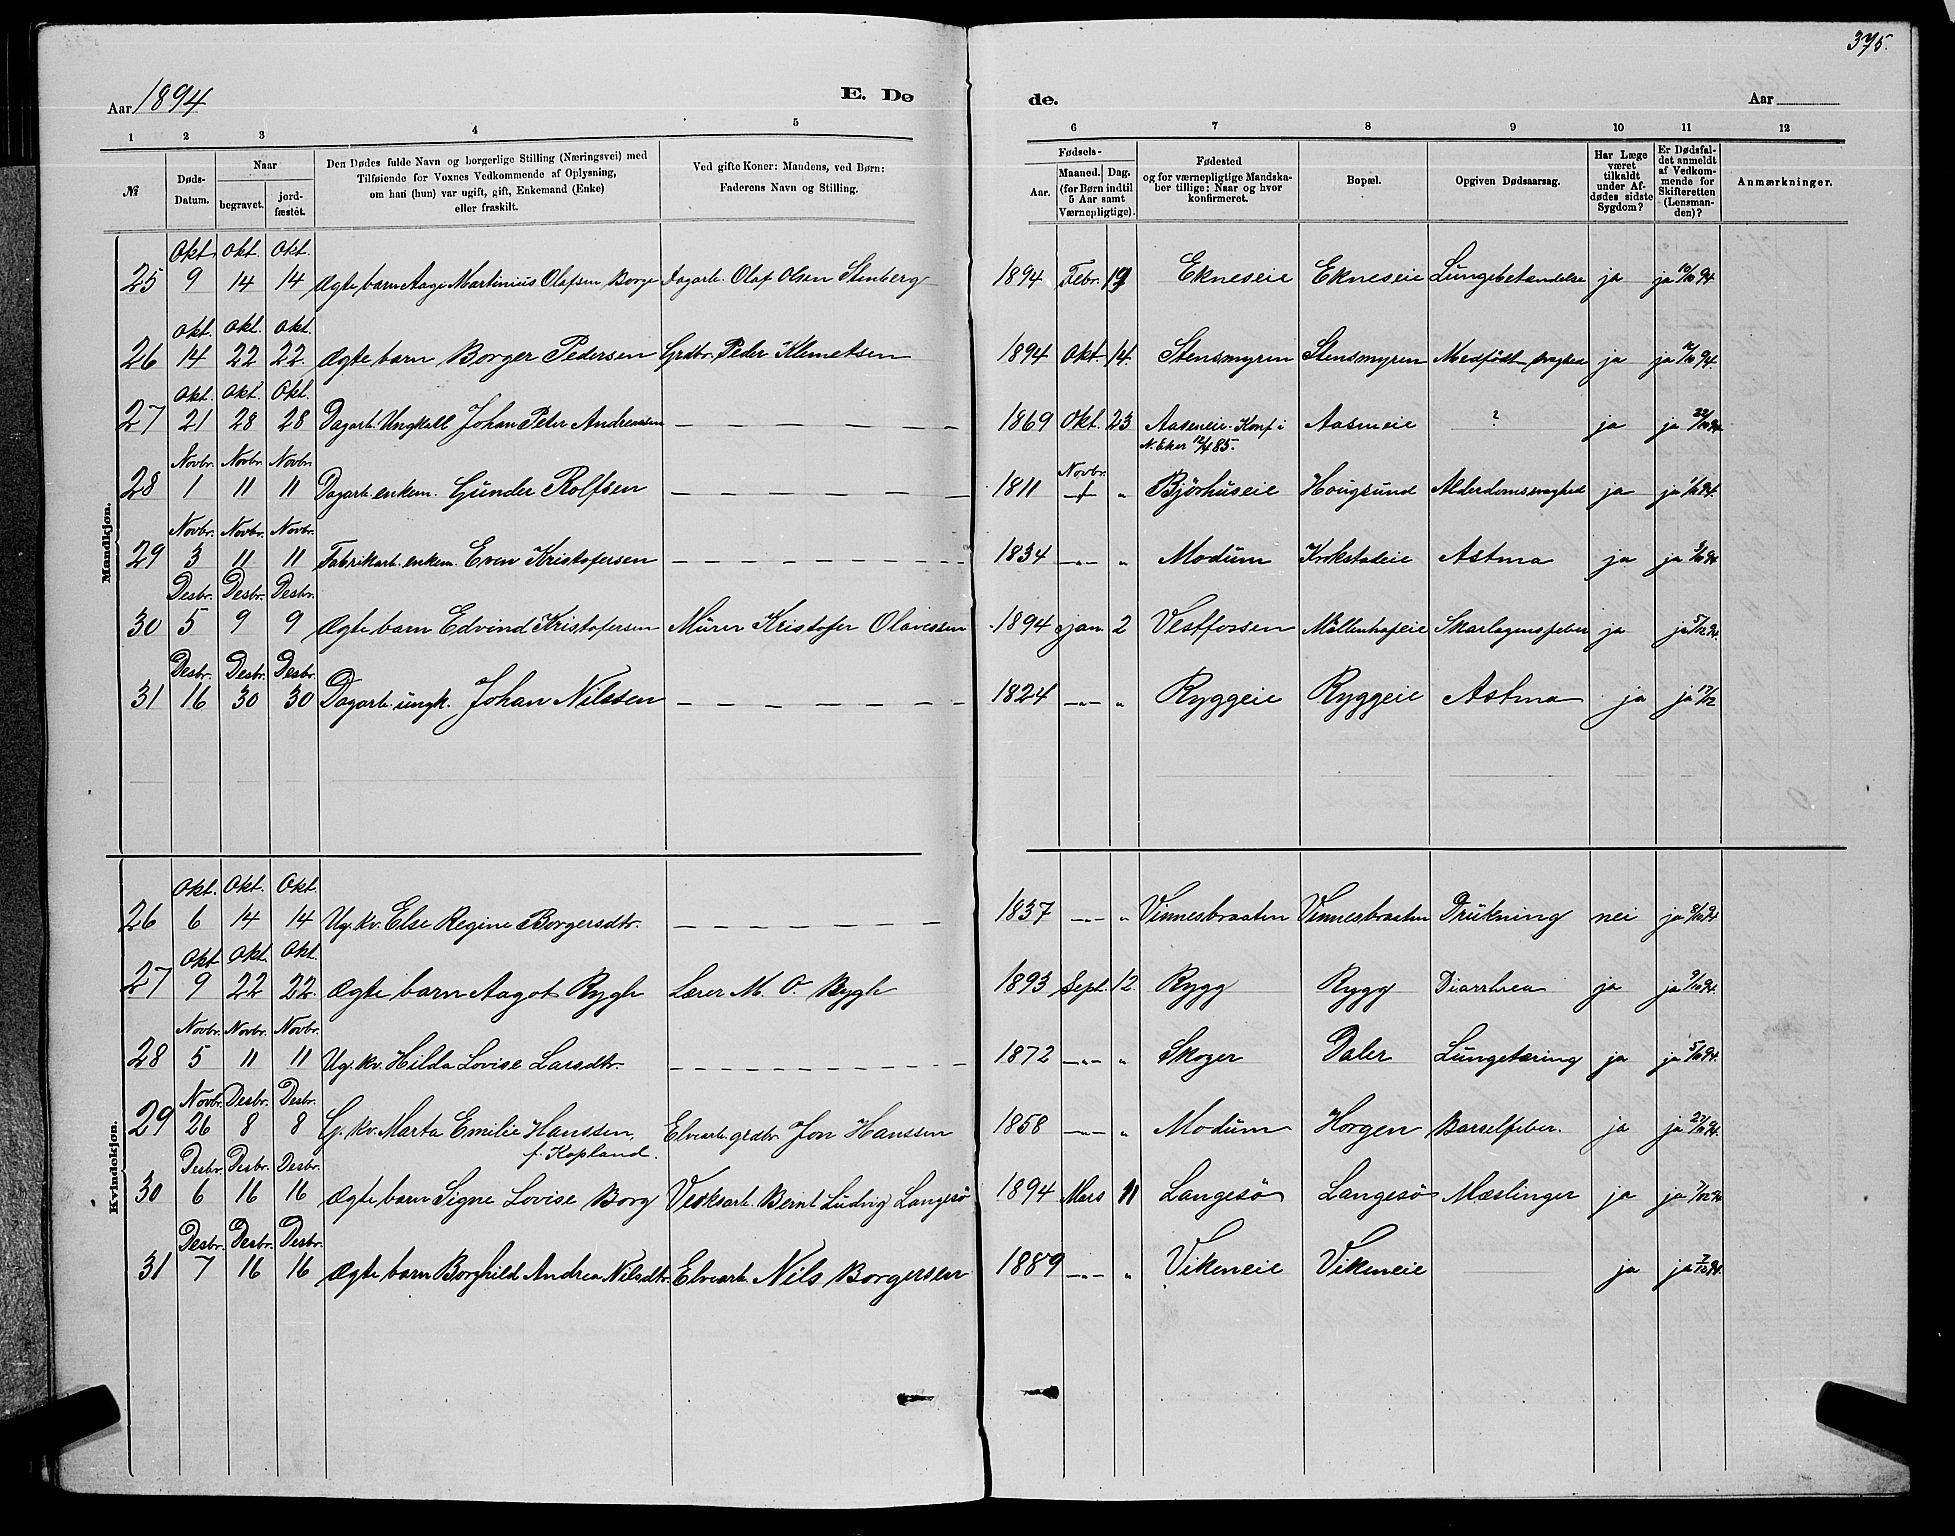 375.
Aar 1894 E. Dø
de. Aar
1 2 3 4 5
6 7 8 9 10 11 12
№ Døds-Datum. Naar begravet. jord-fæstet. Den Dødes fulde Navn og borgerlige Stilling (Næringsvei) med Tilføiende for Voxnes Vedkommende af Oplysning, om han (hun) var ugift, gift, Enkemand (Enke) eller fraskilt. Ved gifte Koner: Mandens, ved Børn: Faderens Navn og Stilling.
Fødsels- Aar. Maaned. Dag. (for Børn indtil 5 Aar samt Værnepligtige). Fødested og for værnepligtige Mandskaber tillige: Naar og hvor konfirmeret. Bopæl. Opgiven Dødsaarsag. Har Læge været tilkaldt under Afdødes sidste Sygdom? Er Dødsfaldet anmeldt af Vedkommende for Skifteretten (Lensmanden)? Anmærkninger.
Mandkjøn.
25 Okt. 9 Okt. 14 Okt. 14 Ægte barn Aage Martinius Olafsen Borge Dagarb. Olaf Olsen Stenberg 1894 Febr. 19 Ekneseie Ekneseie Lungebetændelse ja ja 10/10 94
26 Okt. 14 Okt. 22 Okt. 22. Ægte barn Borger Pedersen Grdbr. Peder Klemetsen 1894 Okt. 14. Stensmyren Stensmyren Medfødt svaghed ja ja 94.
27 Okt. 21 Okt. 28 Okt. 28 Dagarb. Ungkall Johan Peter Andreassen — — — — — 1869 Okt. 23 Aasmeie. Konf i N. Eker 12/4 85. Aasmeie ? ja ja 22/10 94
28 Novbr. 1 Novbr. 11 Novbr. 11 Dagarb. enkem. Gunder Rolfsen — — — — — 1811 Novbr. „ Björhuseie Hougsund Alderdomssvaghed ja ja 94.
29 Novbr. 3 Novbr. 11 Novbr. 11 Fabrikarb. enkem. Even Kristofersen — — — — — 1834 —„— „ Modum Krokstadeie Astma ja ja 94
30 Desbr. 5 Desbr. 9 Desbr. 9 Ægte barn Edvind Kristofersen Murer Kristofer Olavessen 1894 jan. 2 Vestfossen Möllenhofeie Skarlagensfeber ja ja 5/12 94.
31 Desbr. 16 Desbr. 30 Desbr. 30 Dagarb. ungk. Johan Nilssen — — — — — 1824 —„— „ Ryggeie Ryggeie Astma ja ja 17/12
Kvindekjøn.
26 Okt. 6 Okt. 14 Okt. 14 Ug. kv. Else Regine Borgersdtr. — — — — — 1837 —„— „ Vinnesbraaten Vinnesbraaten Drukning nei ja 8/10 94
27 Okt 9 Okt. 22 Okt. 22. Ægte barn Aagot Rygh Lærer M. O. Rygh 1893 Sept. 12. Rygg Rygg Diarrhea ja ja 9/10 94.
28 Novbr. 5 Novbr. 11 Novbr. 11 Ug. kv. Hilda Lovise Larsdtr. — — — — — 1872 —„— „ Skoger Daler Lungetæring ja ja 94.
29 Novbr. 26 Desbr. 8 Desbr. 8 G. kv. Marta Emilie Hanssen, f. Kopland. Elvearb. grdbr. Jon Hanssen 1858 —„— „ Modum Horgen Barselfeber. ja ja 94.
30 Desbr. 6 Desbr. 16 Desbr. 16 Ægte barn Signe Lovise Borg Verksarb. Bernt Ludvig Langesö 1894 Mars 11 Langesö Langesö Mæslinger ja ja 7/12 94
31 Desbr. 7 Desbr. 16 Desbr. 16 Ægte barn Borghild Andrea Nilsdtr. Elvearb. Nils Borgersen 1889 —„— „ Vikeneie Vikeneie ja ja 7/12 94.